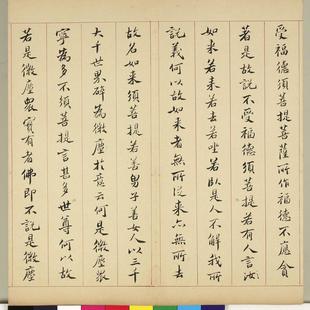 受福德須菩提菩薩所作福德不應貪
著是故説不受福德須菩提若有人言汝
如来若来若去若坐若臥是人不解我所
説義何以故如来者無所従来亦無所去
故名如来須菩提若善男子善女人以三千
大千世界碎為微塵於意云何是微塵衆
寧為多不須菩提言甚多世尊何以故
若是微塵衆實有者佛即不説是微塵